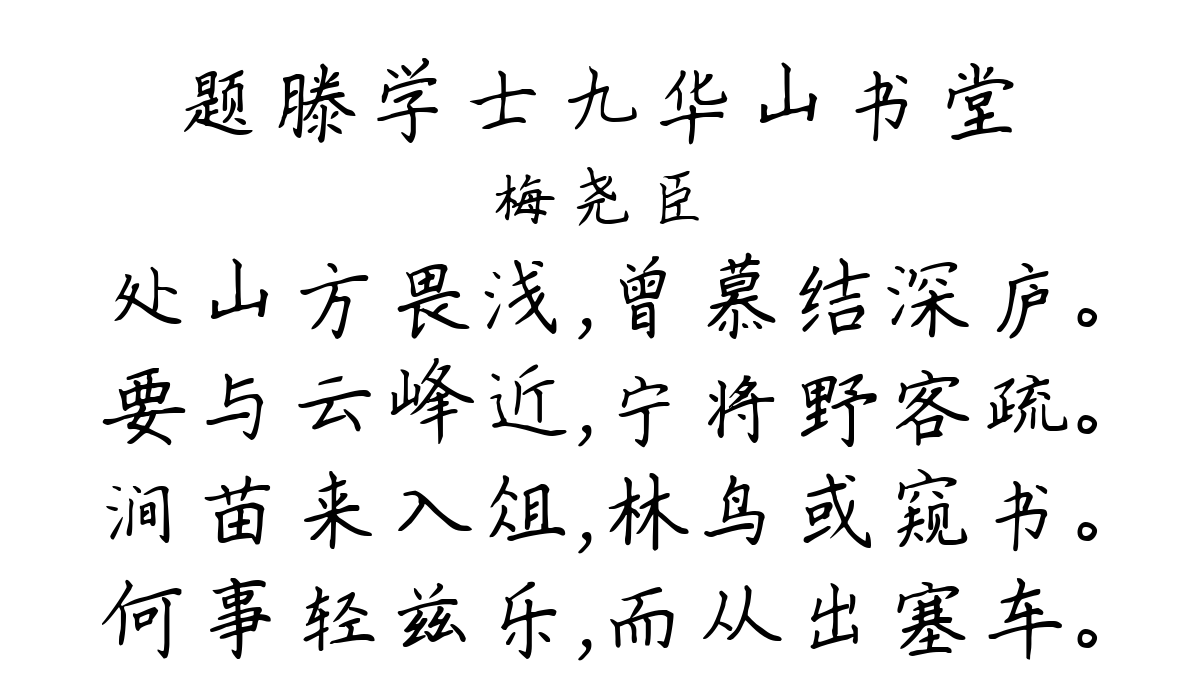 题滕学士九华山书堂
梅尧臣
处山方畏浅,曾慕结深庐。
要与云峰近,宁将野客疏。
涧苗来入俎,林鸟或窥书。
何事轻兹乐,而从出塞车。